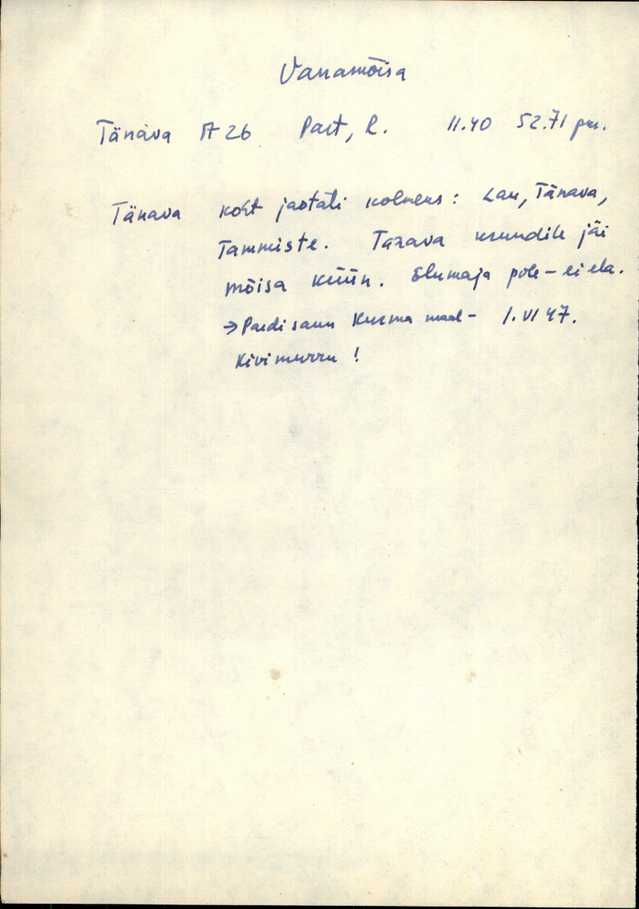 Vanamõisa
Tänava A 26 Part, R. 11.40 52.71 prs.
Tänava koht jaotati kolmeks: Lau, Tänava,
Tammiste. Tänava krundile jäi
mõisa küün. Elumaja pole – ei ela.
→ Pardi saun Kurma maal – 1. VI 47.
Kivimurru!